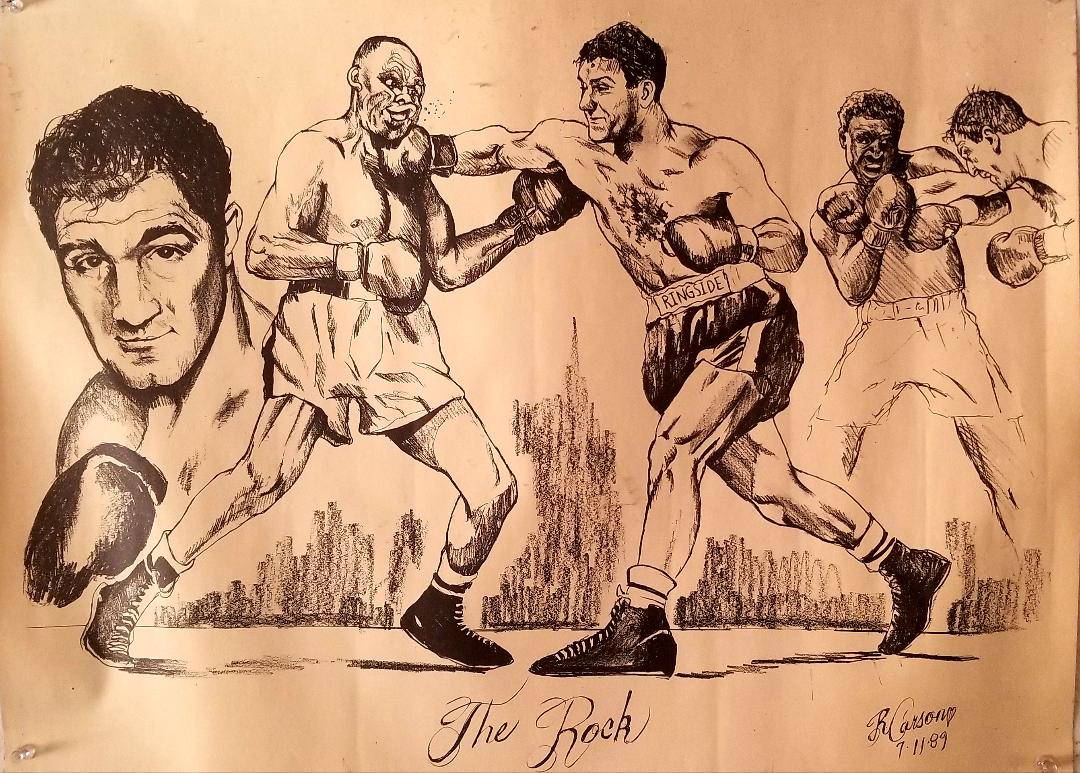 RINGSIDE
The Rock
R Carson
7·11·89